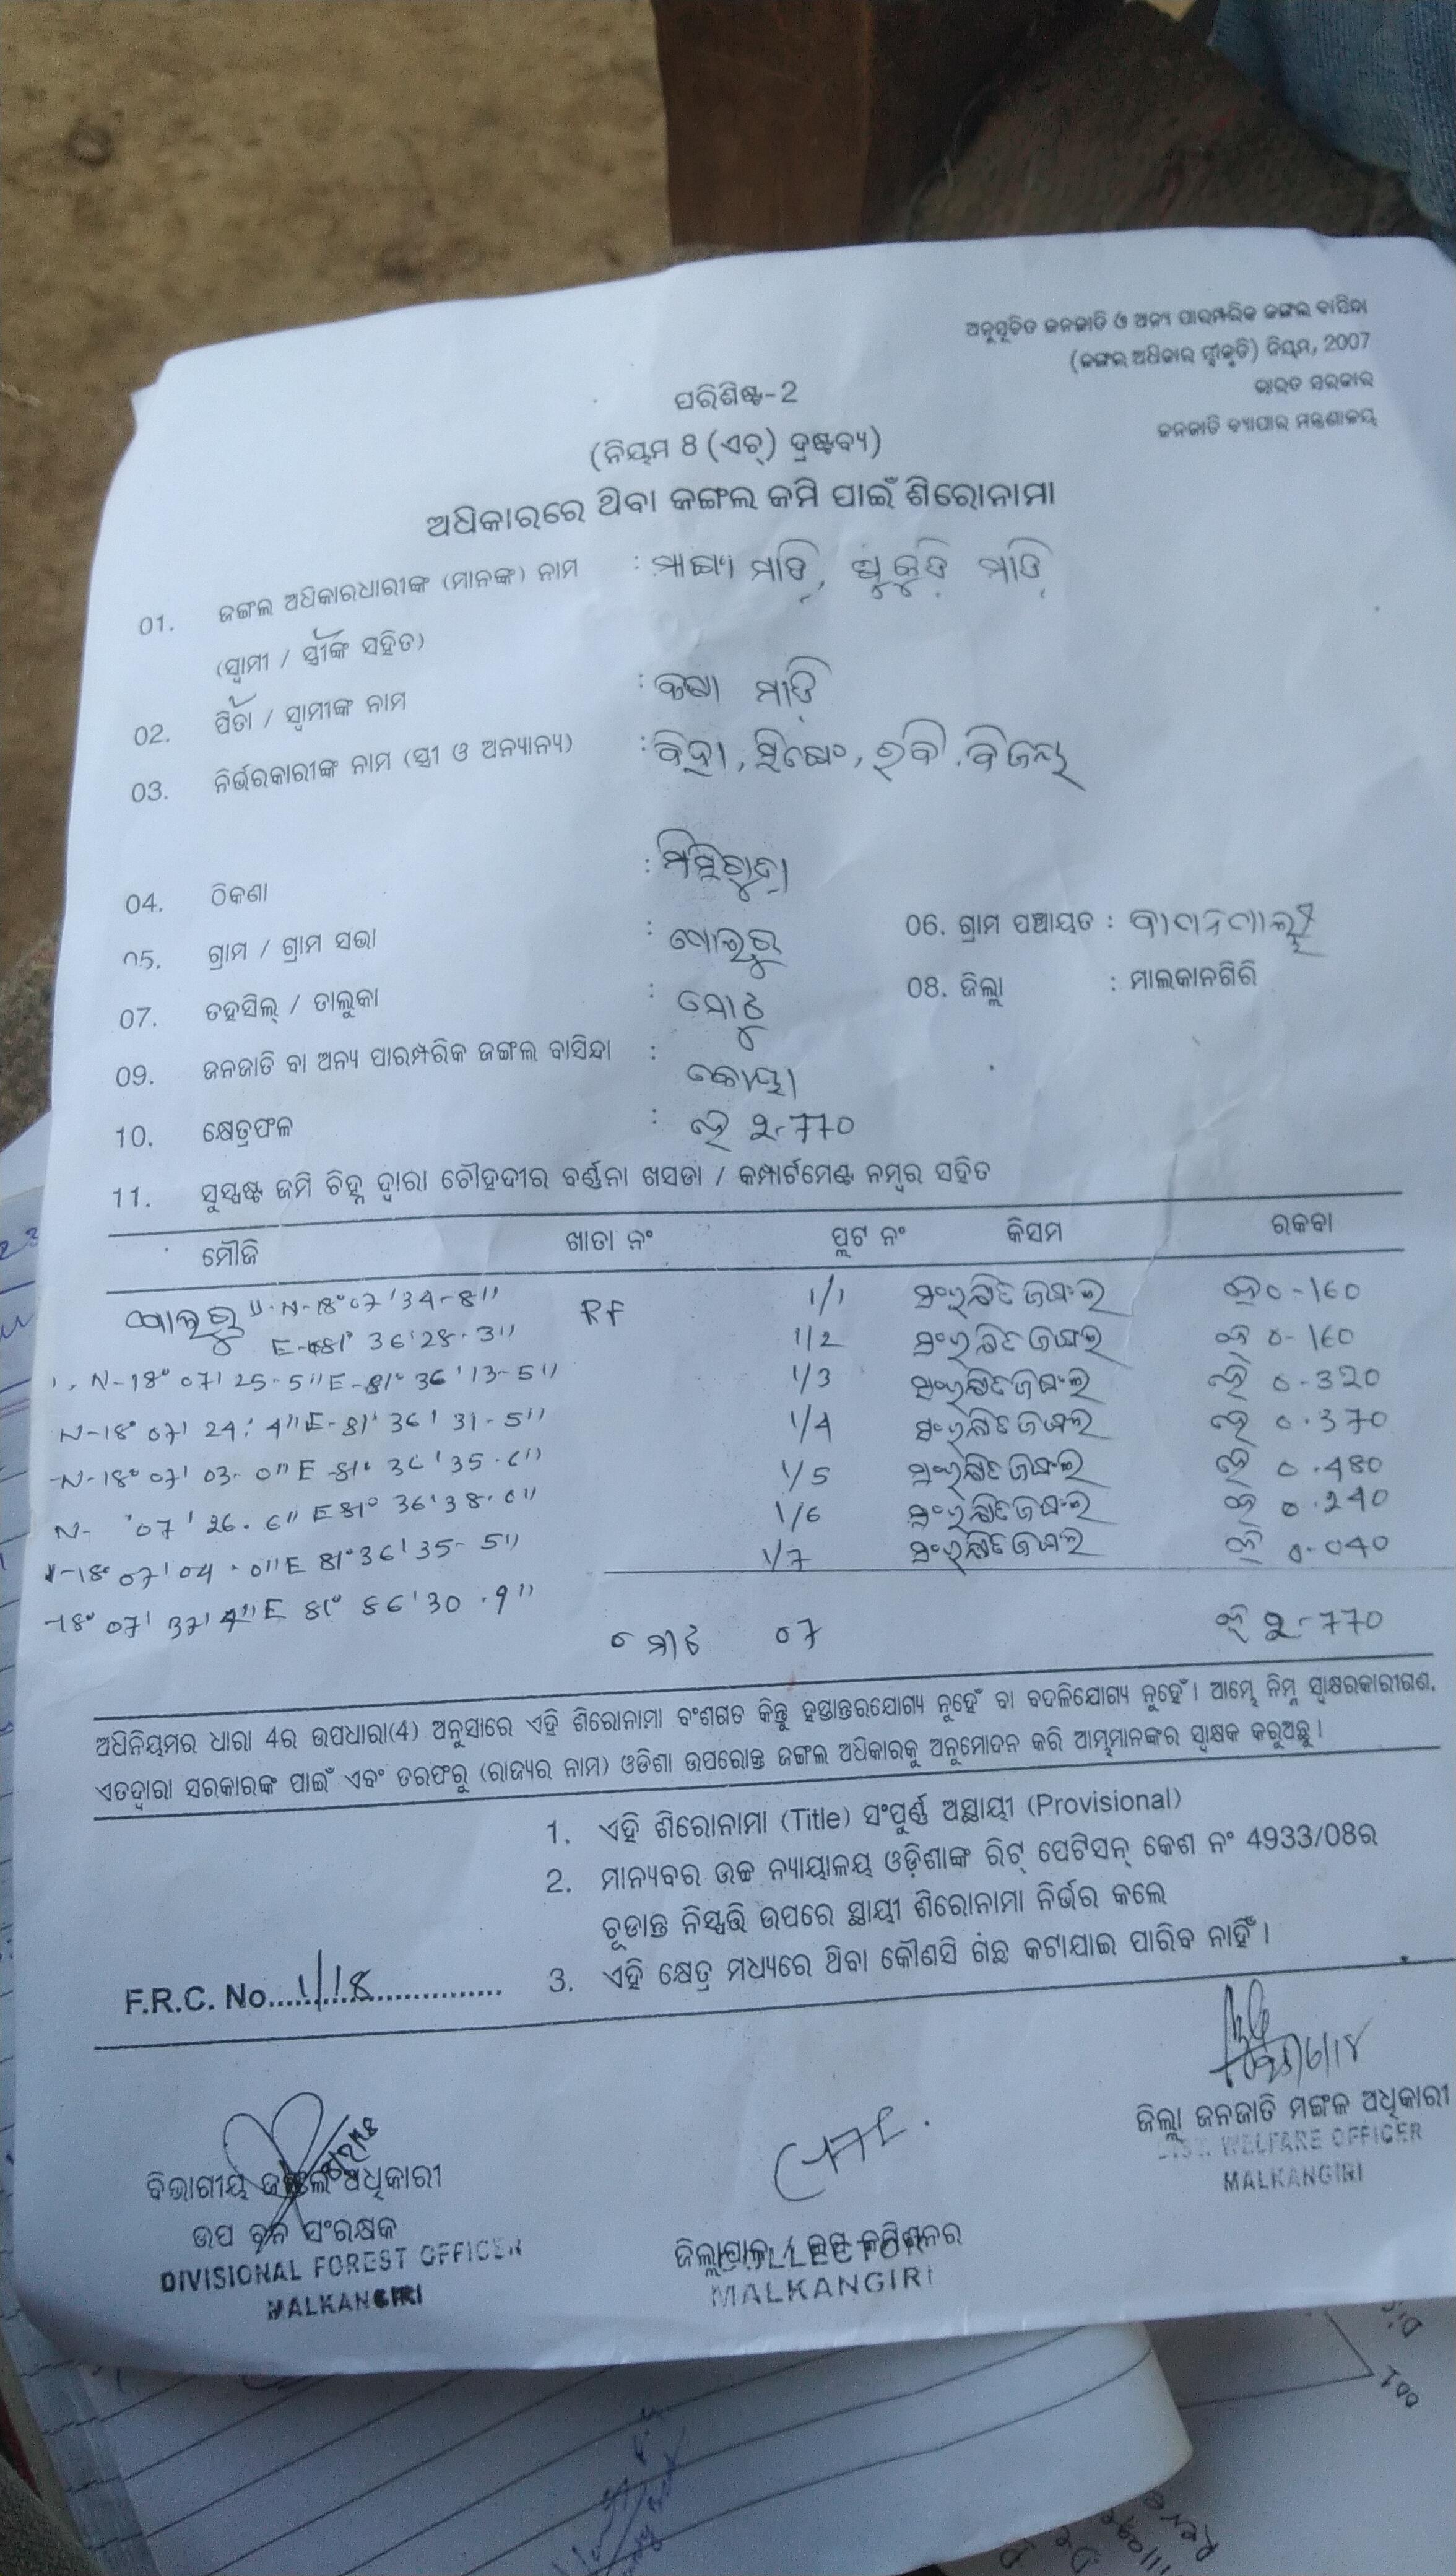 ଅନୁସୂଚିତ ଜନଜାତି ଓ ଅନ୍ୟ ପାରମ୍ପରିକ ଜଙ୍ଗଲ ବାସିନ୍ଦା
(ଜଙ୍ଗଲ ଅଧିକାର ସ୍ୱୀକୃତି) ନିୟମ, 2007
ଭାରତ ସରକାର
ଜନଜାତି ବ୍ୟାପାର ମନ୍ତ୍ରଣାଳୟ
ପରିଶିଷ୍ଟ-2
(ନିୟମ 8 (ଏଚ୍) ଦ୍ରଷ୍ଟବ୍ୟ)
ଅଧିକାରରେ ଥିବା ଜଙ୍ଗଲ ଜମି ପାଇଁ ଶିରୋନାମା
01. ଜଙ୍ଗଲ ଅଧିକାରଧାରୀଙ୍କ (ମାନଙ୍କ) ନାମ : ମାଡ଼ି, ମାଡ଼ି
(ସ୍ୱାମୀ / ସ୍ତ୍ରୀଙ୍କ ସହିତ)
02. ପିତା / ସ୍ୱାମୀଙ୍କ ନାମ : ମାଡ଼ି
03. ନିର୍ଭରକାରୀଙ୍କ ନାମ (ସ୍ତ୍ରୀ ଓ ଅନ୍ୟାନ୍ୟ) : ରବି, ବିଜୟ
04. ଠିକଣା :
05. ଗ୍ରାମ / ଗ୍ରାମ ସଭା : 06. ଗ୍ରାମ ପଞ୍ଚାୟତ :
07. ତହସିଲ୍ / ତାଲୁକା : 08. ଜିଲ୍ଲା : ମାଲକାନଗିରି
09. ଜନଜାତି ବା ଅନ୍ୟ ପାରମ୍ପରିକ ଜଙ୍ଗଲ ବାସିନ୍ଦା : କୋୟା
10. କ୍ଷେତ୍ରଫଳ : ହେ ୨-770
11. ସୁସ୍ପଷ୍ଟ ଜମି ଚିହ୍ନ ଦ୍ୱାରା ଚୌହଦୀର ବର୍ଣ୍ଣନା ଖସଡା / କମ୍ପାର୍ଟମେଣ୍ଟ ନମ୍ବର ସହିତ
ମୌଜି ଖାତା ନଂ ପ୍ଲଟ ନଂ କିସମ ରକବା
N-18°07'34-8" RF 1/1 ସଂରକ୍ଷିତ ଜଙ୍ଗଲ ହେ 0-160
E-81° 36'28.3" 1/2 ସଂରକ୍ଷିତ ଜଙ୍ଗଲ ହେ 0-160
N-18° 07' 25-5" E-81° 36' 13-5" 1/3 ସଂରକ୍ଷିତ ଜଙ୍ଗଲ ହେ 0-320
N-18° 07' 24' 4" E-81' 36' 31-5" 1/4 ସଂରକ୍ଷିତ ଜଙ୍ଗଲ ହେ 0.370
N-18° 07' 03-0" E-81° 36' 35.6" 1/5 ସଂରକ୍ଷିତ ଜଙ୍ଗଲ ହେ 0.480
N- '07' 26.6" E 81° 36'38.0" 1/6 ସଂରକ୍ଷିତ ଜଙ୍ଗଲ ହେ 0.240
-18° 07' 04.0" E 81° 36' 35-5" 1/7 ସଂରକ୍ଷିତ ଜଙ୍ଗଲ ହେ 0-040
-18° 07' 37' 4" E 81° 56'30.9"
ମୋଟ 07 ହେ ୨-770
ଅଧିନିୟମର ଧାରା 4ର ଉପଧାରା(4) ଅନୁସାରେ ଏହି ଶିରୋନାମା ବଂଶଗତ କିନ୍ତୁ ହସ୍ତାନ୍ତରଯୋଗ୍ୟ ନୁହେଁ ବା ବଦଳିଯୋଗ୍ୟ ନୁହେଁ। ଆମ୍ଭେ ନିମ୍ନ ସ୍ୱାକ୍ଷରକାରୀଗଣ,
ଏତଦ୍ୱାରା ସରକାରଙ୍କ ପାଇଁ ଏବଂ ତରଫରୁ (ରାଜ୍ୟର ନାମ) ଓଡିଶା ଉପରୋକ୍ତ ଜଙ୍ଗଲ ଅଧିକାରକୁ ଅନୁମୋଦନ କରି ଆମ୍ଭମାନଙ୍କର ସ୍ୱାକ୍ଷକ କରୁଅଛୁ।
1. ଏହି ଶିରୋନାମା (Title) ସଂପୂର୍ଣ୍ଣ ଅସ୍ଥାୟୀ (Provisional)
2. ମାନ୍ୟବର ଉଚ୍ଚ ନ୍ୟାୟାଳୟ ଓଡ଼ିଶାଙ୍କ ରିଟ୍ ପେଟିସନ୍ କେଶ ନଂ 4933/08ର
ଚୂଡାନ୍ତ ନିସ୍ପତ୍ତି ଉପରେ ସ୍ଥାୟୀ ଶିରୋନାମା ନିର୍ଭର କଲେ
3. ଏହି କ୍ଷେତ୍ର ମଧ୍ୟରେ ଥିବା କୌଣସି ଗଛ କଟାଯାଇ ପାରିବ ନାହିଁ।
F.R.C. No....1/18....
ଜିଲ୍ଲା ଜନଜାତି ମଙ୍ଗଳ ଅଧିକାରୀ
DIST. WELFARE OFFICER
MALKANGIRI
ବିଭାଗୀୟ ଜଙ୍ଗଲ ଅଧିକାରୀ
ଉପ ବନ ସଂରକ୍ଷକ
DIVISIONAL FOREST OFFICER
MALKANGIRI
ଜିଲ୍ଲାପାଳ / ଉପ କମିଶନର
COLLECTOR
MALKANGIRI